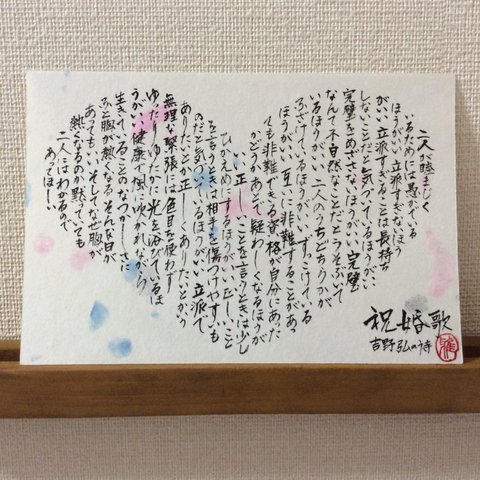 二人が睦まじく
いるためには愚かでいる
ほうがいい 立派すぎないほう
がいい 立派すぎることは長持ち
しないことだと気づいているほうがいい
完璧をめざさないほうがいい 完璧
なんて不自然なことだとうそぶいて
いるほうがいい 二人のうちどちらかが
ふざけているほうがいい ずっこけている
ほうがいい 互いに非難することがあっ
ても非難できる資格が自分にあった
かどうかあとで疑わしくなるほうが
いい 正しいことを言うときは少し
ひかえめにするほうがいい 正しいこと
を言うときは相手を傷つけやすいも
のだと気づいているほうがいい 立派で
ありたいとか正しくありたいとかいう
無理な緊張には色目を使わず
ゆったりゆたかに光を浴びているほ
うがいい 健康で風に吹かれながら
生きていることのなつかしさに
ふと胸が熱くなる そんな日が
あってもいい そしてなぜ胸が
熱くなるのか黙っていても
二人にはわかるので
あってほしい
祝婚歌
吉野弘の詩